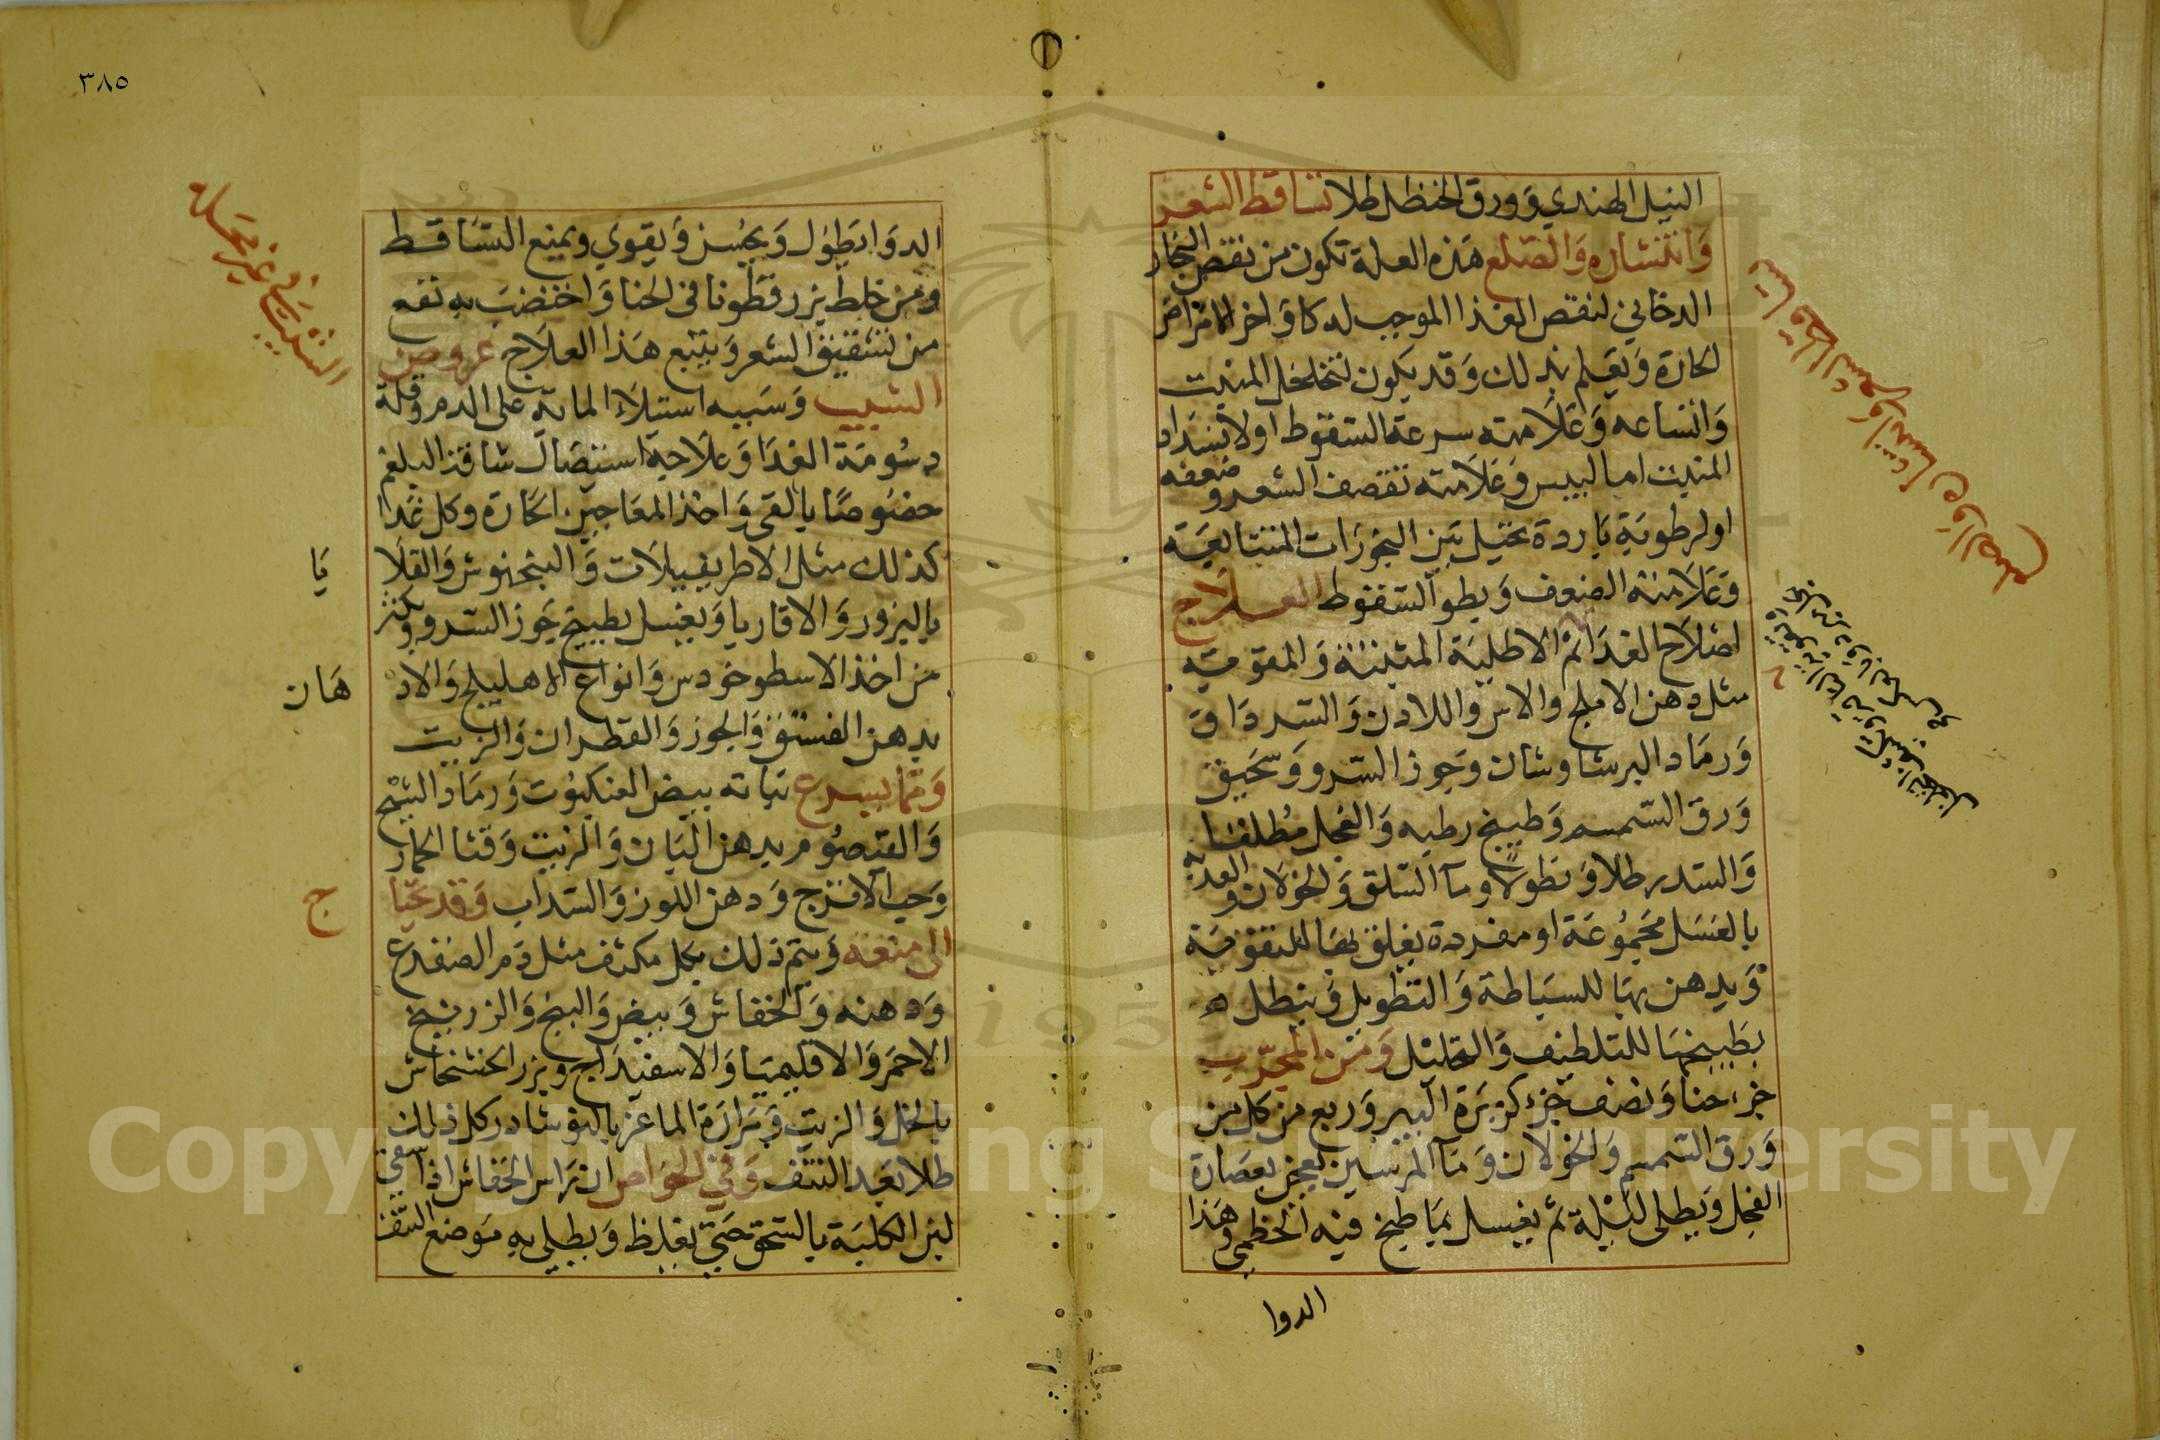 النيل الهندي وورق الحنظل طلا تساقط الشعر
وانتشاره والصلع هذه العلة تكون من نقص البخار
الدخاني لنقص الغذا الموجب له كاواخر الامراض
الحارة ويعلم بذلك وقد يكون لتخلخل المنبت
واتساعه وعلامته سرعة السقوط او لانسداد
المنبت اما لليبس وعلامته تقصف الشعر وضعفه
او لرطوبة باردة تحيل بين البخورات المتتابعة
وعلامته الضعف وبطو السقوط العلاج
اصلاح الغذا ثم الاطلية المثبتة والمقوية
مثل دهن الاملج والاس واللادن والسذاب
ورماد البرشاوشان وجوز السرو وسحيق
ورق السمسم وطبيخ رطبه والفجل مطلقا
والسدر طلا ونطولا وما السلق والخولان و
بالعسل مجموعة او مفردة يغلف بها للتقوية
ويدهن بها للسباطة والتطويل وينطل
بطبيخها للتلطيف والتحليل ومن المجرب
جزء حنا ونصف جزء كزبرة البير وربع من كل من
ورق السمسم والخولان وما المرسين يعجن بعصارة
الفجل ويطلى ليلة ثم يغسل بما طبخ فيه الخطمي وهذا
الدوا
٣٨٥
الشيب في غير محله
الدوا يطول ويحسن ويقوي ويمنع التساقط
ومن خلط بزر قطونا في الحنا واختضب به نفعه
من تشقيق الشعر ويتبع هذا العلاج عروض
الشيب وسببه استيلاء المائة على الدم وقلة
دسومة الغذا وعلاجه استيصال شافة البلغم
خصوصا بالقي واخذ المعاجين الحارة وكل غذا
كذلك مثل الاطريفيلات والبنجنوش والقلايا
بالبزور والاقاريا ويغسل بطبيخ جوز السرو ويكثر
من اخذ الاسطوخودس وانواع الاهليلج والادهان
بدهن الفستق والجوز والقطران والزيت
ومما يسرع نباته بيض العنكبوت ورماد الشيح
والقيصوم بدهن البان والزيت وقثا الحمار
وحب الاترج ودهن اللوز والسداب وقد يحتاج
الى منعه ويتم ذلك بكل مكثف مثل دم الضفدع
ودهنه والخفاش وبيض والبنج والزرنيخ
الاحمر والاقليميا والاسفيداج وبزر الخشخاش
بالخل والزيت ومرارة الماعز بالنوشادر كل ذلك
طلا بعد النتف وفي الخواص ان راس الخفاش اذا سقي
لبن الكلبة بالسحق حتى يغلظ ويطلى به موضع النتف